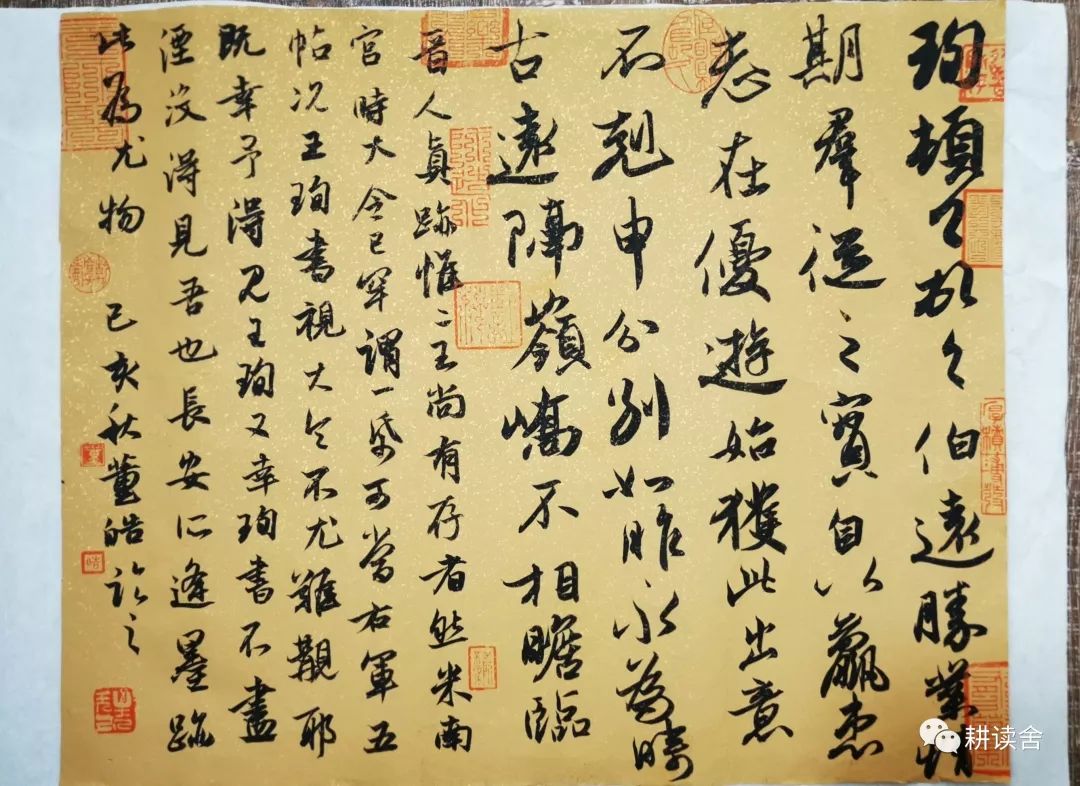 珣頓首頓首伯遠勝業情
期羣從之寳自以羸患
志在優遊始獲此出意
不剋申分別如昨永為疇
古遠隔嶺嶠不相瞻臨
晉人眞跡惟二王尚有存者然米南
宮時大令已罕謂一帋可當右軍五
帖況王珣書視大令不尤難覯耶
既幸予得見王珣又幸珣書不盡
湮沒得見吾也長安所逢墨跡
此為尤物 己亥秋董皓臨之
厚積薄發
耕读舍